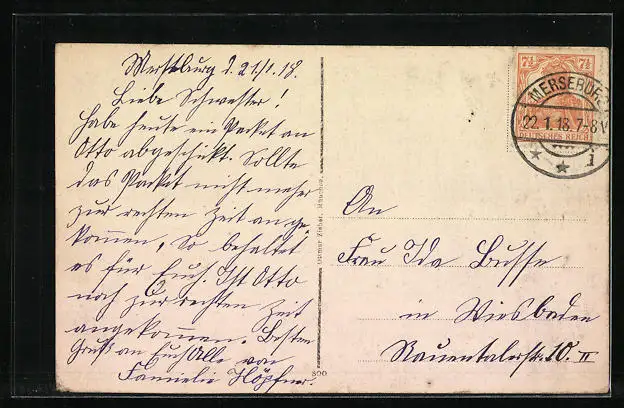 Merseburg d. 21/1.18.
Liebe Schwester!
Habe heute ein Packet an
Otto abgeschikt. Sollte
das Packet nicht meher
zur rechten Zeit ange
kommen, So behaltet
es für Euch. Ist Otto
noch zur rechten Zeit
angekommen. Besten
Gruß an Euch Alle von
Familie Höpfner.
Ottmar Zieher, München.
300
7½ 7½
DEUTSCHES REICH
MERSEBURG
22.1.18.7-8V
1
An
Frau Ida Busse
in Wiesbaden
Rauentalerstr. 10. II